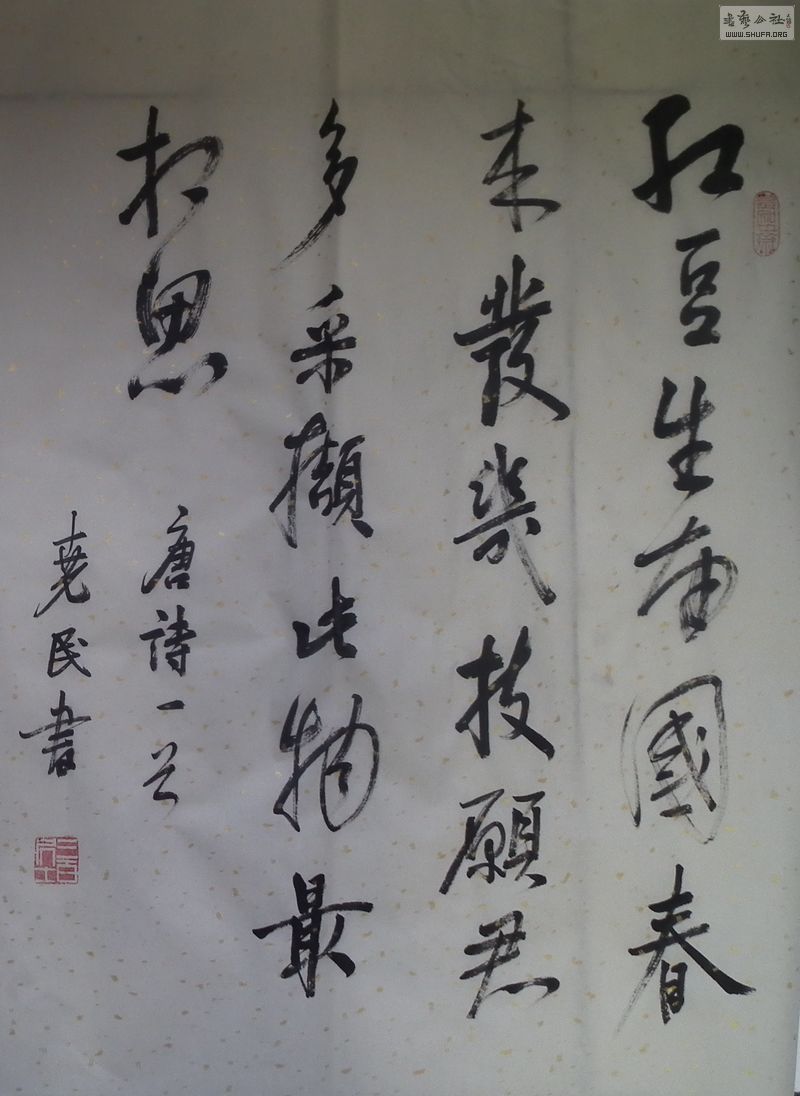 红豆生南國春
来發幾枝願君
多采擷此物最
相思
唐詩一首
堯民書
書藝公社
WWW.SHUFA.ORG